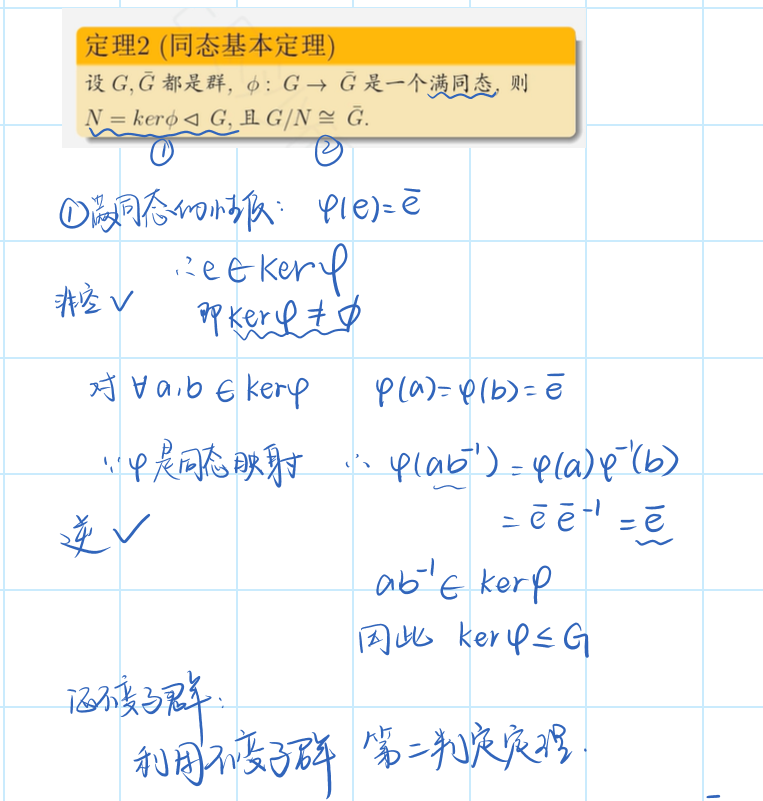 定理2 (同态基本定理)
设 G, Ḡ 都是群, ϕ: G → Ḡ 是一个满同态, 则
N = kerϕ ◁ G, 且 G/N ≅ Ḡ.
① ②
①满同态的性质: φ(e)=ē
∴e∈kerφ
非空 ✓ 即kerφ≠∅
对∀a,b∈kerφ φ(a)=φ(b)=ē
∵φ是同态映射 ∴ φ(ab⁻¹)=φ(a)φ⁻¹(b)
逆 ✓ =ē ē⁻¹=ē
ab⁻¹∈kerφ
因此 kerφ≤G
证不变子群:
利用不变子群 第二判定定理.